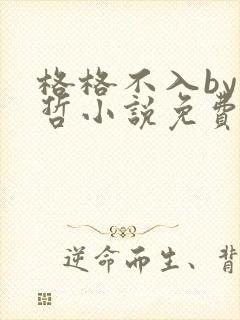 格格不入by
哲小說免費
逆命而生、背